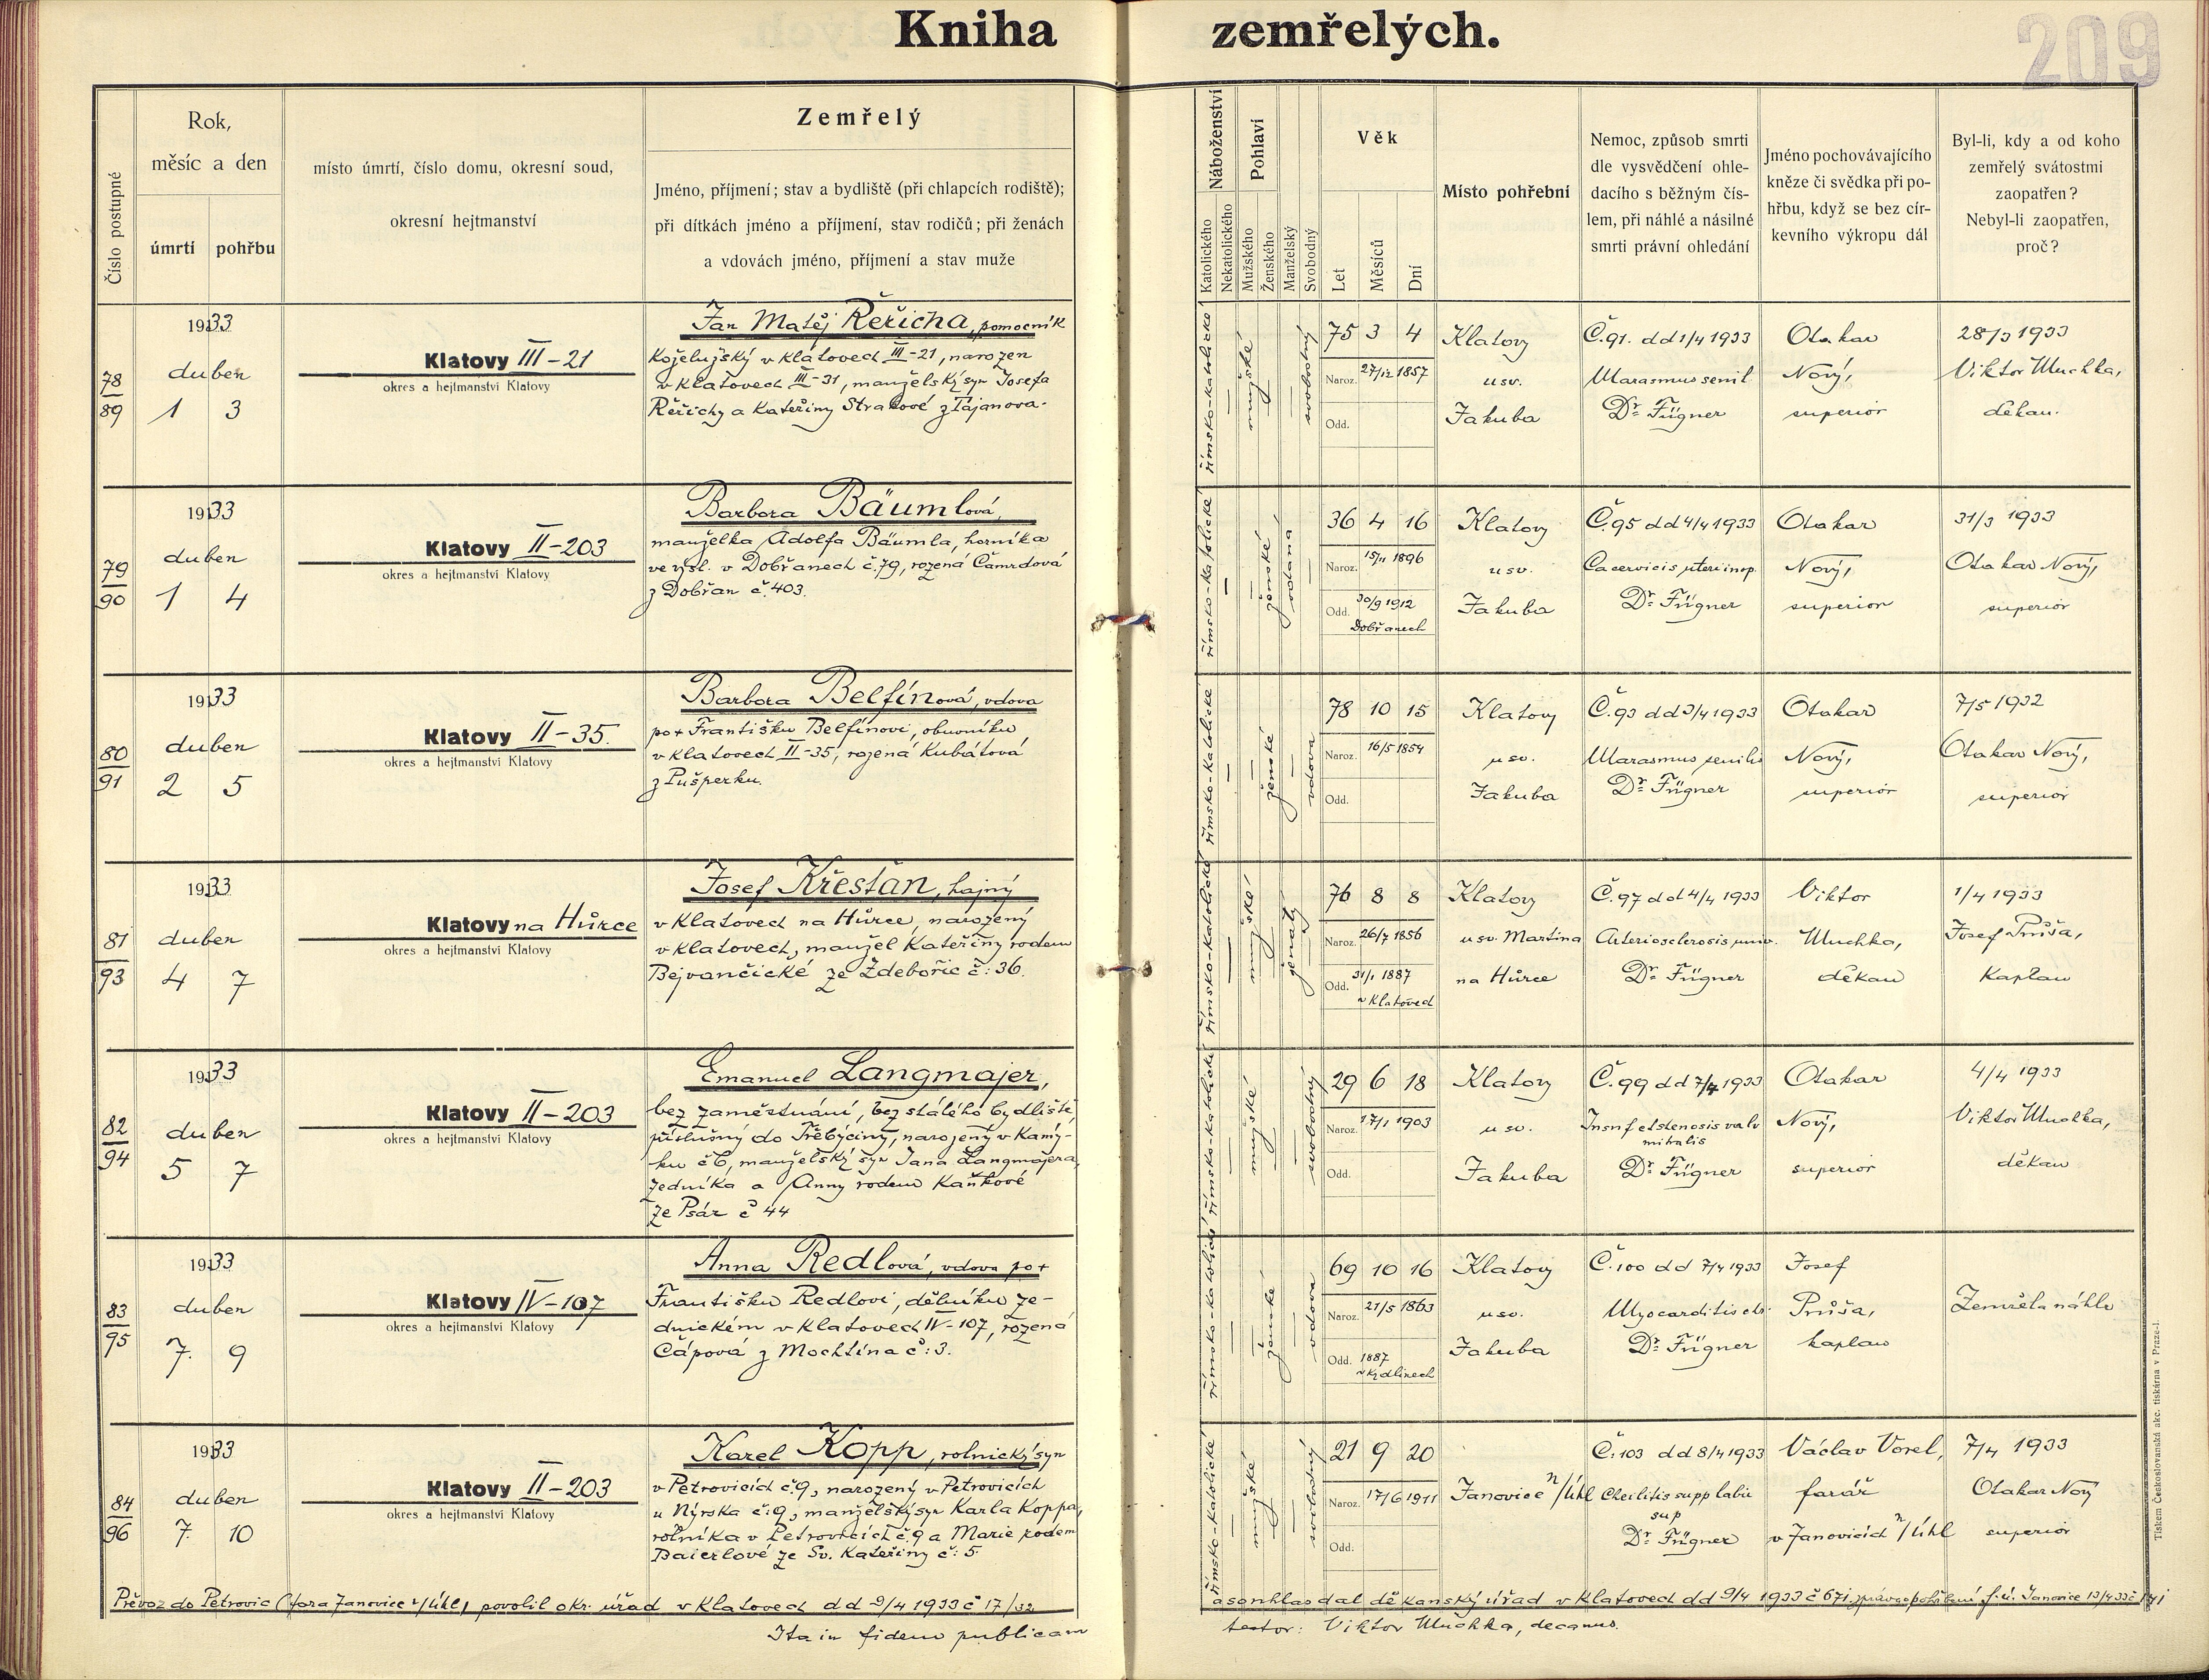 Kniha zemřelých.
209
Číslo postupné
Rok,
měsíc a den
úmrtí pohřbu
místo úmrtí, číslo domu, okresní soud,
okresní hejtmanství
Zemřelý
Jméno, příjmení; stav a bydliště (při chlapcích rodiště);
při dítkách jméno a příjmení, stav rodičů; při ženách
a vdovách jméno, příjmení a stav muže
Náboženství
Katolického
Nekatolického
Pohlaví
Mužského
Ženského
Manželský
Svobodný
Věk
Let
Měsíců
Dní
Místo pohřební
Nemoc, způsob smrti
dle vysvědčení ohle-
dacího s běžným čís-
lem, při náhlé a násilné
smrti právní ohledání
Jméno pochovávajícího
kněze či svědka při po-
hřbu, když se bez cír-
kevního výkropu dál
Byl-li, kdy a od koho
zemřelý svátostmi
zaopatřen?
Nebyl-li zaopatřen,
proč?
78
89
1933
duben
1 3
Klatovy III-21
okres a hejtmanství Klatovy
Jan Matěj Řeřicha, pomocník
koželužský v Klatovech III-21, narozen
v Klatovech III-31, manželský syn Josefa
Řeřichy a Kateřiny Strakové z Tajanova.
římsko-katolické
mužské
svobodný
75 3 4
Naroz. 27/12 1857
Odd.
Klatovy
u sv.
Jakuba
Č.91. dd 1/4 1933
Marasmus senil
Dr. Fügner
Otakar
Nový,
superior
28/3 1933
Viktor Muchka,
děkan.
79
90
1933
duben
1 4
Klatovy II-203
okres a hejtmanství Klatovy
Barbora Bäumlová,
manželka Adolfa Bäumla, horníka
ve výsl. v Dobřanech č.79, rozená Čamrdová
z Dobřan č.403.
římsko-katolické
ženské
vdaná
36 4 16
Naroz. 15/11 1896
Odd. 30/9 1912
Dobřanech
Klatovy
u sv.
Jakuba
Č.95 dd 4/4 1933
Ca cervicis uteri inop.
Dr. Fügner
Otakar
Nový,
superior
31/3 1933
Otakar Nový,
superior
80
91
1933
duben
2 5
Klatovy II-35.
okres a hejtmanství Klatovy
Barbora Belfínová, vdova
po + Františku Belfínovi, obuvníku
v Klatovech II-35, rozená Kubátová
z Pušperku.
římsko-katolické
ženské
vdova
78 10 15
Naroz. 16/5 1854
Odd.
Klatovy
u sv.
Jakuba
Č.93 dd 3/4 1933
Marasmus senilis
Dr. Fügner
Otakar
Nový,
superior
7/5 1932
Otakar Nový,
superior
81
93
1933
duben
4 7
Klatovy na Hůrce
okres a hejtmanství Klatovy
Josef Křesťan, hajný
v Klatovech na Hůrce, narozený
v Klatovech, manžel Kateřiny rodem
Bejvančické ze Ždebořic č: 36.
římsko-katolické
mužské
ženatý
76 8 8
Naroz. 26/7 1856
Odd. 31/1 1887
v Klatovech
Klatovy
u sv. Martina
na Hůrce
Č.97 dd 4/4 1933
Arteriosclerosis univ.
Dr. Fügner
Viktor
Muchka,
děkan
1/4 1933
Josef Průša,
kaplan
82
94
1933
duben
5 7
Klatovy II-203
okres a hejtmanství Klatovy
Emanuel Langmajer,
bez zaměstnání, bez stálého bydliště,
příslušný do Třebýciny, narozený v Kamý-
ku č 6, manželský syn Jana Langmajera,
zedníka a Anny rodem Kaňkové
ze Psár č 44
římsko-katolické
mužské
svobodný
29 6 18
Naroz. 17/1 1903
Odd.
Klatovy
u sv.
Jakuba
Č.99 dd 7/4 1933
Insnf et stenosis valv
mitralis
Dr. Fügner
Otakar
Nový,
superior
4/4 1933
Viktor Muchka,
děkan
83
95
1933
duben
7. 9
Klatovy IV-107
okres a hejtmanství Klatovy
Anna Redlová, vdova po +
Františku Redlovi, dělníku ze-
dnickém v Klatovech IV-107, rozená
Čápová z Mochtína č: 3.
římsko-katolické
ženské
vdova
69 10 16
Naroz. 21/5 1863
Odd. 1887
v Kydlinech
Klatovy
u sv.
Jakuba
Č.100 dd 7/4 1933
Myocarditis chr.
Dr. Fügner
Josef
Průša,
kaplan
Zemřela náhle
84
96
1933
duben
7. 10
Klatovy II-203
okres a hejtmanství Klatovy
Karel Kopp, rolnický syn
v Petrovicích č.9, narozený v Petrovicích
u Nýrska č:9, manželský syn Karla Koppa,
rolníka v Petrovicích č.9 a Marie rodem
Baierlové ze Sv. Kateřiny č: 5.
římsko-katolické
mužské
svobodný
21 9 20
Naroz. 17/6 1911
Odd.
Janovice n/Úhl
Č.103 dd 8/4 1933
Cheilitis supp labii
sup
Dr. Fügner
Václav Vorel,
farář
v Janovicích n/Úhl
7/4 1933
Otakar Nový
superior
Převoz do Petrovic (fara Janovice n/Úhl) povolil okr. úřad v Klatovech dd 9/4 1933 č 17/32
a souhlas dal děkanský úřad v Klatovech dd 9/4 1933 č 671. zpráva o pohřbení f. ú. Janovice 13/4 33 č 171
Ita in fidem publicam
testor: Viktor Muchka, decanus.
Tiskem Československá akc. tiskárna v Praze-I.